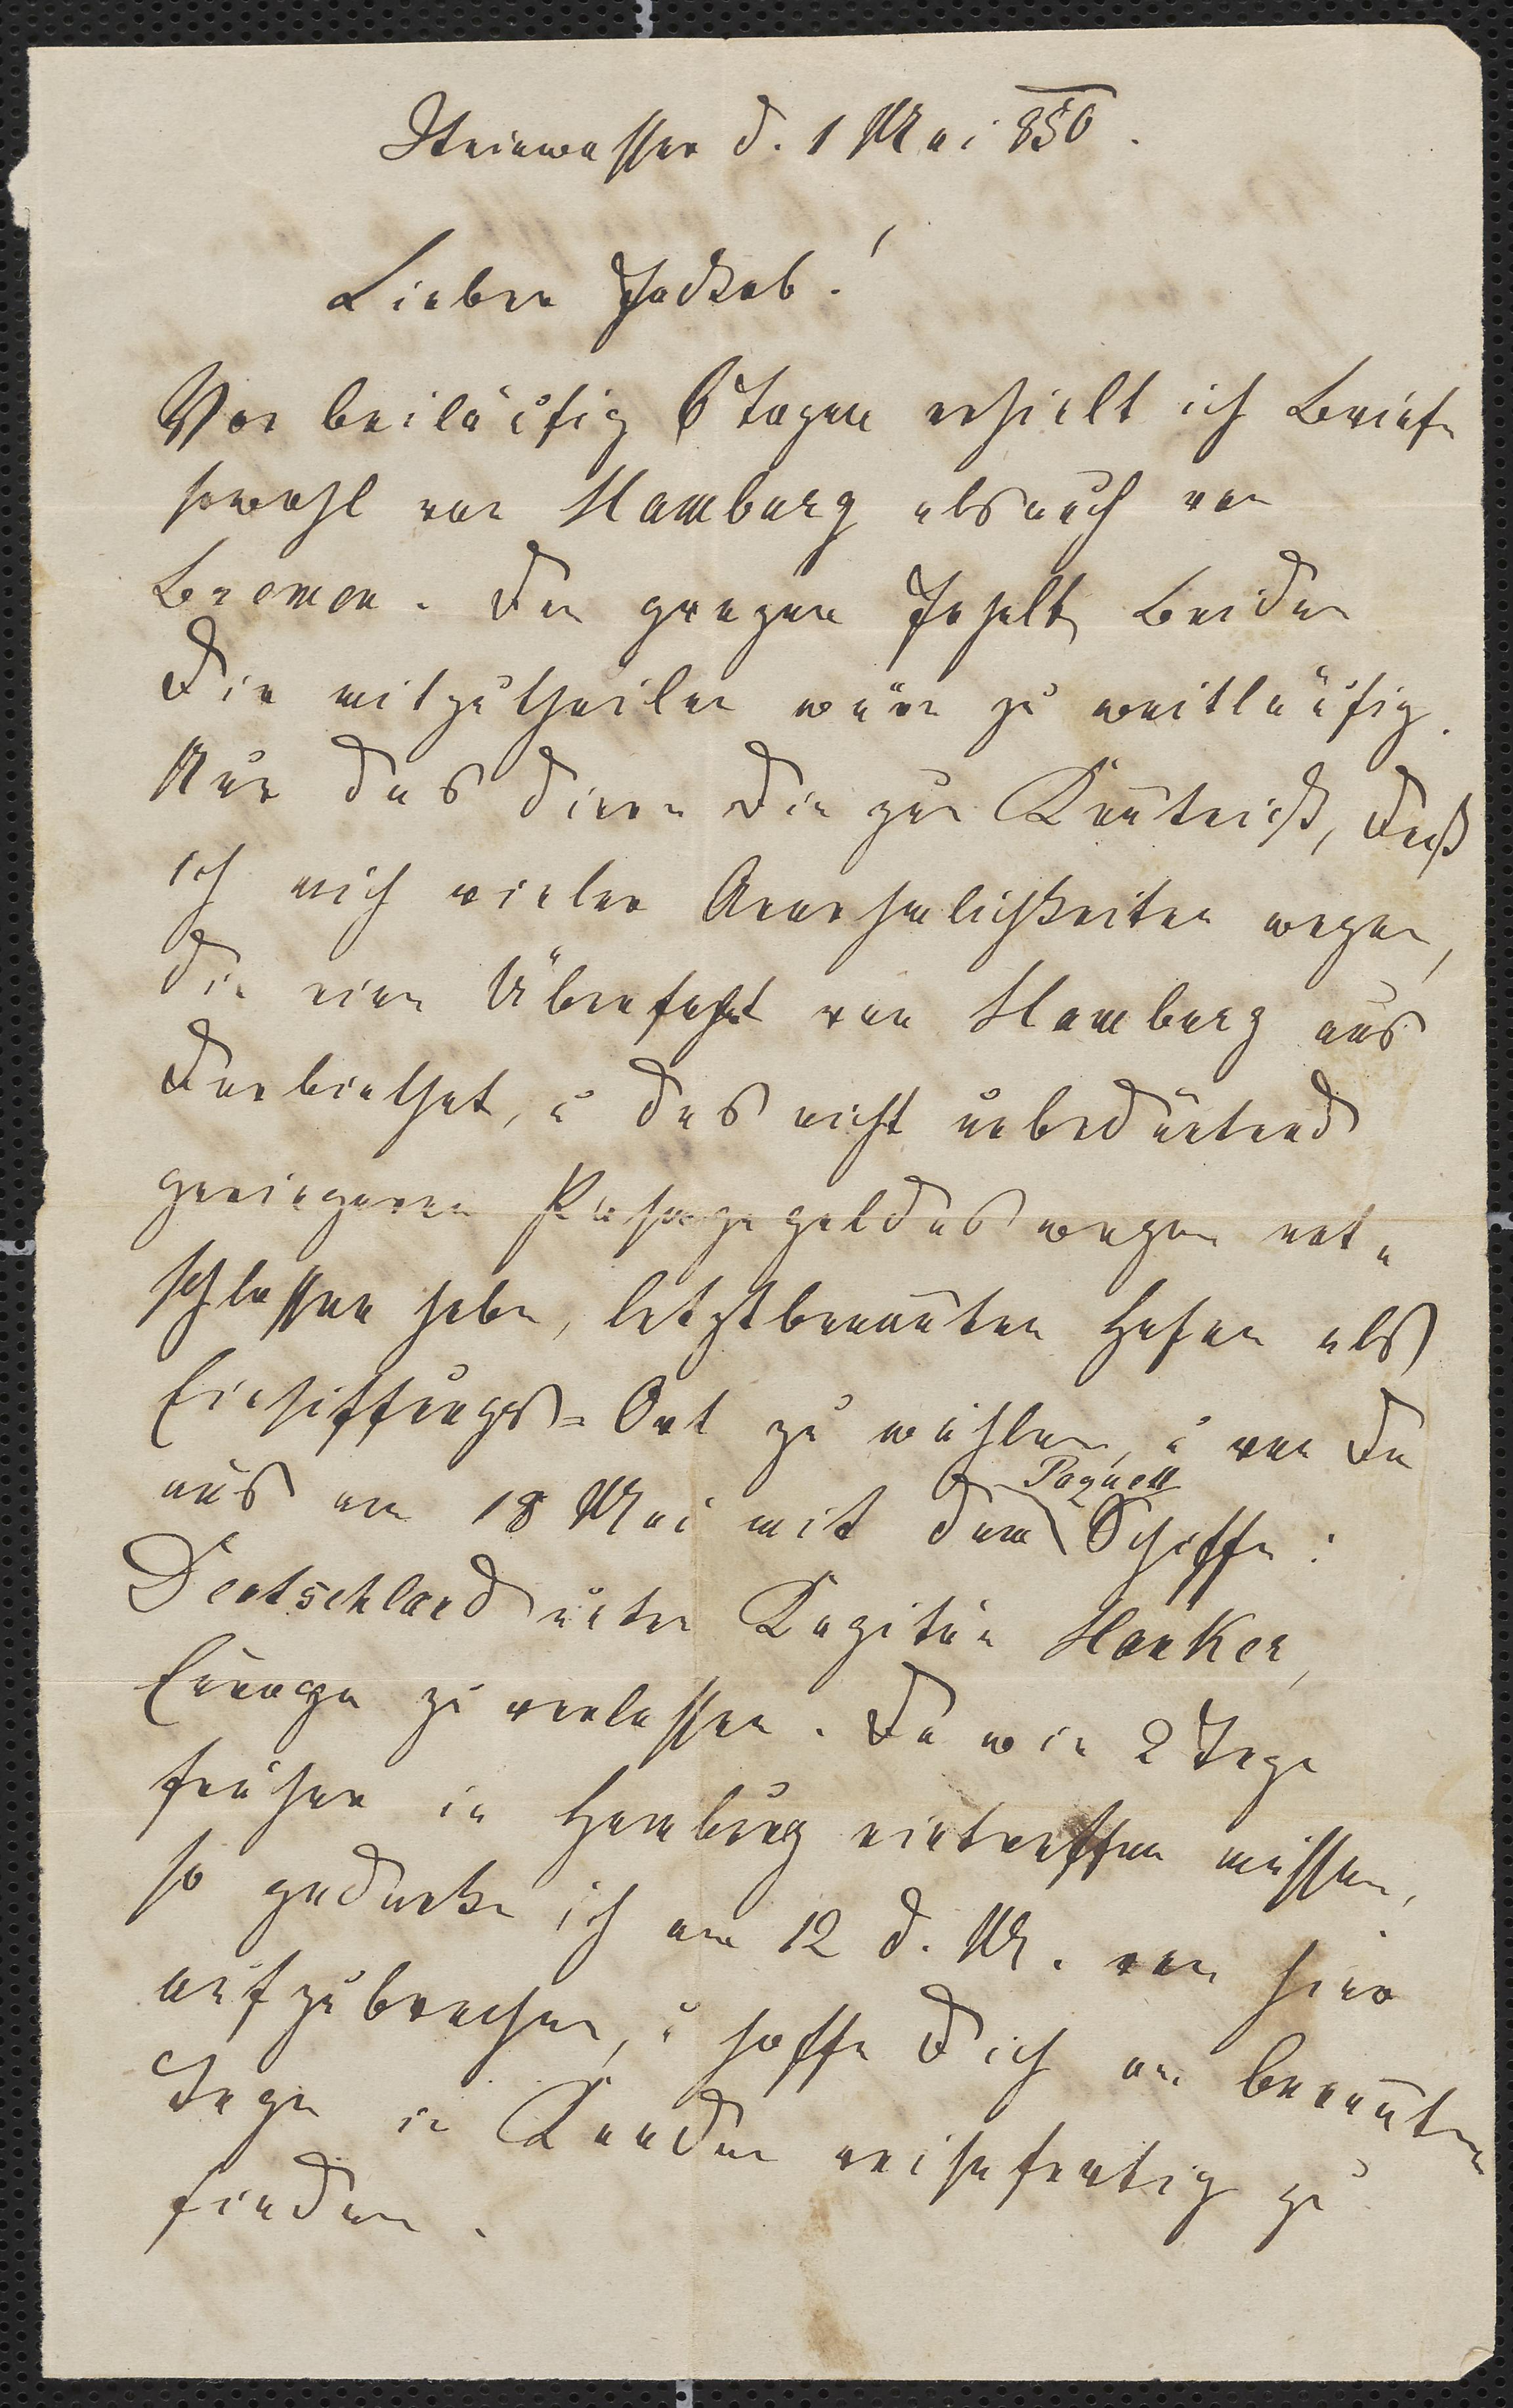 Steinwasser d. 1 Mai 850.
Lieber Jackob!
Vor beiläufig 6 Tagen erhielt ich Briefe
sowohl von Hamburg als auch von
Bremen. Den ganzen Inhalt Beider
Dir mitzutheilen wäre zu weitläufig.
Nur das diene Dir zur Kentniß, daß
ich mich vieler Annehmlichkeiten wegen,
die eine Überfahrt von Hamburg aus
darbiethet, u das nicht unbedeutend
geringeren Passagegeldes wegen ent„
schlossen habe, letztbenanten Hafen als
Einschiffungs-Ort zu wählen, u von da
aus am 18 Mai mit dem Paquett Schiffe:
Deutschland unter Kapitän Hancker,
Europa zu verlassen. Da wir 2 Tage
früher in Hamburg eintreffen müssen,
so gedenke ich am 12 d. M. von hier
aufzubrechen, u hoffe Dich am benanten
Tage in Kaaden reisefertig zu
finden.